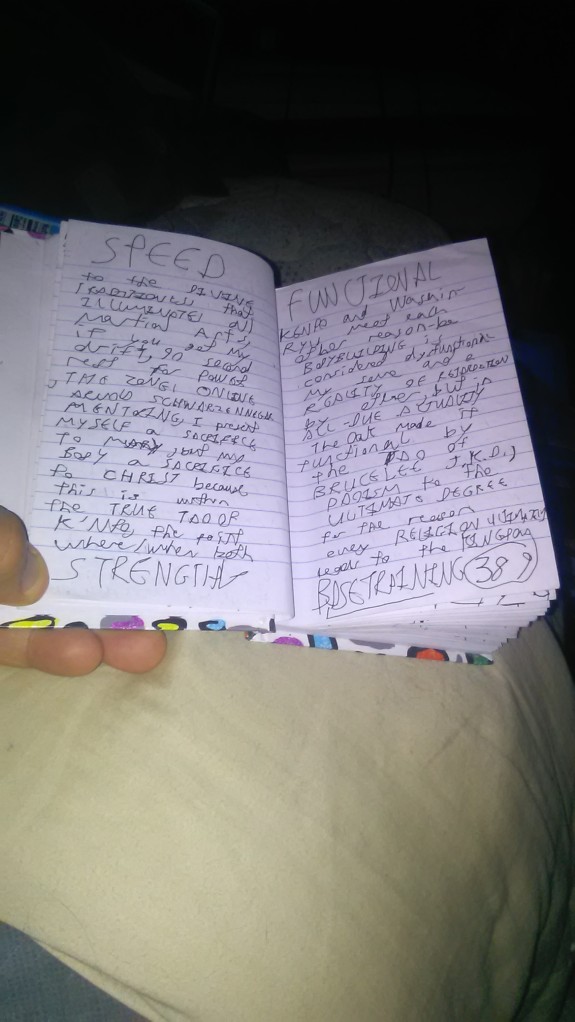 SPEED
to the DIVINE
that
ILLUMINATES all
Martial Arts,
if you get my
drift, 90 second
rest for power
THE ZONE, ONLINE
ARNOLD SCHWARZENNEGER
MENTORING, I present
MYSELF a SACRIFICE
TO my
BODY a SACRIFICE
to CHRIST because
this is within
the TRUE TAO OF
K'NPO, the point
where/when both
STRENGTH
FUNCTIONAL
KENPO and Washin
RYU meet each
other reason-be
BODYBUILDING is
considered dysfunctional
my
REGALITY OF
by other, but is
ALL-DUE ACTUALITY
The Oak made it
functional by
the DAO of
BRUCE LEE J.K.D.,
DAOISM to the
ULTIMATE DEGREE
for the reason
every RELIGION
leads to the
BASE TRAINING 389